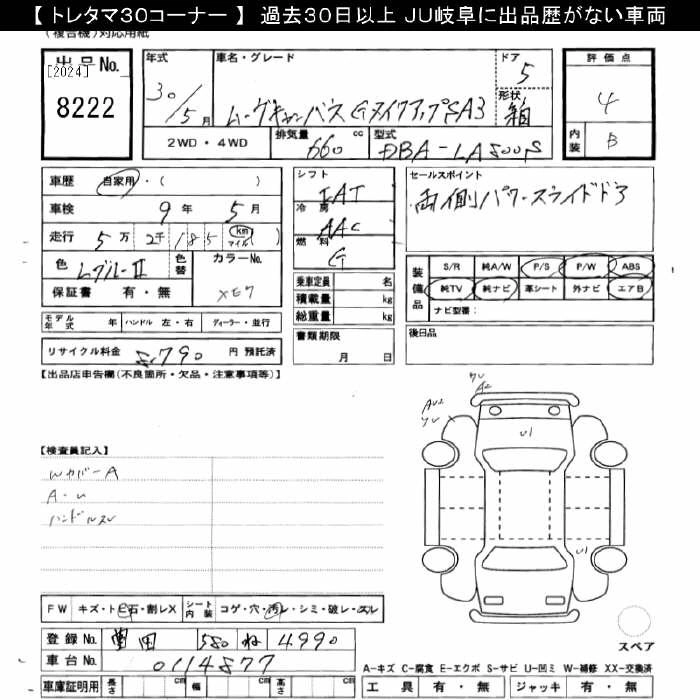 【 トレタマ30コーナー 】 過去30日以上 JU岐阜に出品歴がない車両
(複合機)対応用紙
出品No.
[2024]
8222
年式
30/5月
車名・グレード
ムーヴキャンバス GメイクアップSA3
ドア
5
形状
箱
評価点
4
内装
B
2WD・4WD
排気量 660 cc
型式 DBA-LA800S
車歴 自家用・( )
車検 9年 5月
走行 5万 2千 185 (km マイル)( )
色
色替
カラーNo.
XE7
保証書 有・無
モデル年式 年 ハンドル 左・右 ディーラー・並行
リサイクル料金 8,790 円 預託済
シフト
IAT
冷房
AAC
燃料
G
乗車定員 名
積載量 kg
総重量 kg
書類期限
月 日
セールスポイント
両側パワースライドドア
装備品
S/R 純A/W P/S P/W ABS
純TV 純ナビ 革シート 外ナビ エアB
ナビ型番:
後日品
【出品店申告欄(不良箇所・欠品・注意事項等)】
A2
U1
【検査員記入】
Wカバー A
A・U
ハンドルスレ
FW キズ・トビ石・割レX
シート内装 コゲ・穴・汚レ・シミ・破レ・スレ
登録No. 豊田 580 ね 4990
車台No. 0114877
車庫証明用 長さ cm 幅 cm 高さ cm
スペア
A-キズ C-腐食 E-エクボ S-サビ U-凹ミ W-補修 XX-交換済
工具 有・無 ジャッキ 有・無